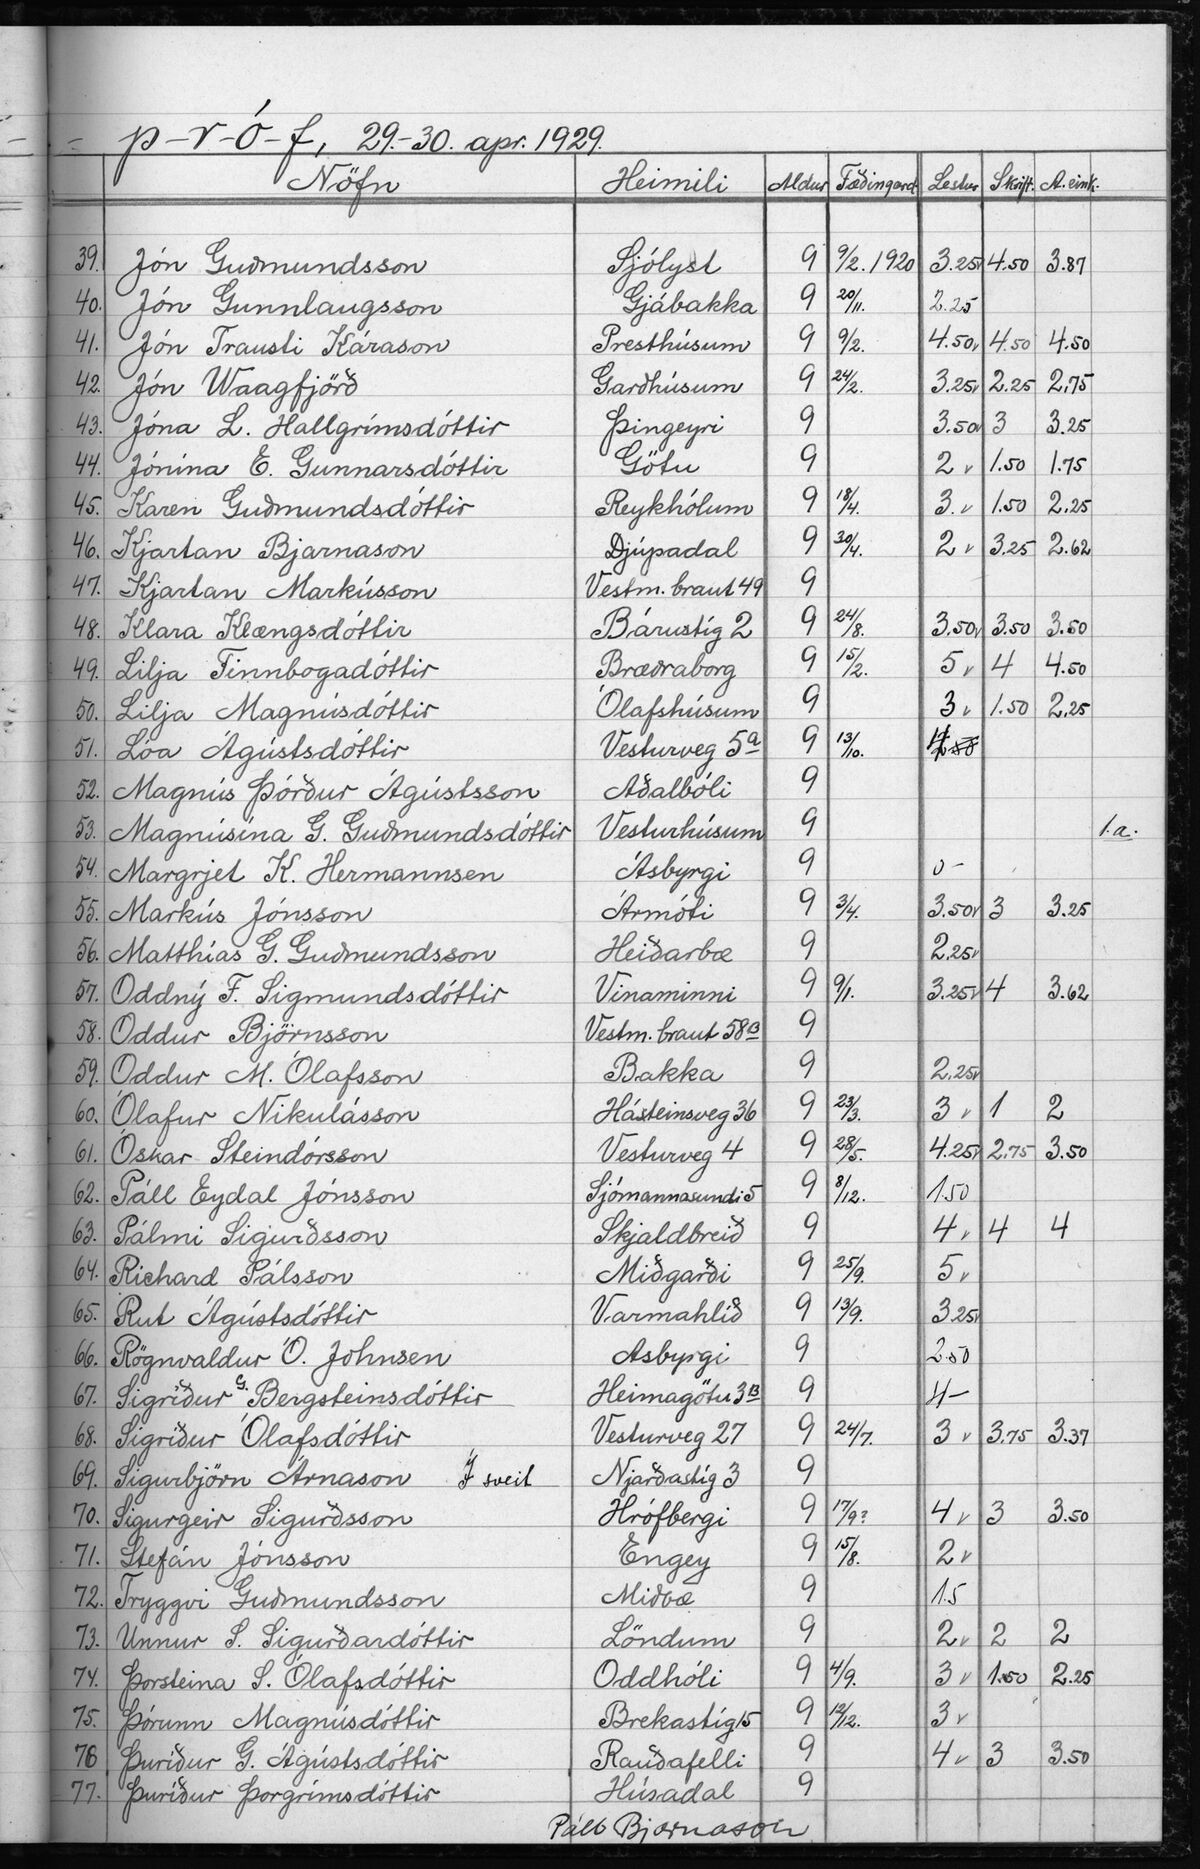 p-r-ó-f, 29.-30. apr. 1929.
Nöfn Heimili Aldur Fæðingard. Lestur Skrift. A. eink.
39. Jón Guðmundsson Sjólyst 9 9/2. 1920 3.25v 4.50 3.87
40. Jón Gunnlaugsson Gjábakka 9 20/11. 2.25
41. Jón Trausti Kárason Presthúsum 9 9/2. 4.50v 4.50 4.50
42. Jón Waagfjörð Garðhúsum 9 24/2. 3.25v 2.25 2.75
43. Jóna L. Hallgrímsdóttir Þingeyri 9 3.50v 3 3.25
44. Jónína E. Gunnarsdóttir Götu 9 2 v 1.50 1.75
45. Karen Guðmundsdóttir Reykhólum 9 18/4. 3. v 1.50 2.25
46. Kjartan Bjarnason Djúpadal 9 30/4. 2 v 3.25 2.62
47. Kjartan Markússon Vestm. braut 49 9
48. Klara Klængsdóttir Bárustíg 2 9 24/8. 3.50v 3.50 3.50
49. Lilja Finnbogadóttir Bræðraborg 9 15/2. 5 v 4 4.50
50. Lilja Magnúsdóttir Ólafshúsum 9 3 v 1.50 2.25
51. Lóa Ágústsdóttir Vesturveg 5a 9 13/10.
52. Magnús Þórður Ágústsson Aðalbóli 9
53. Magnúsína G. Guðmundsdóttir Vesturhúsum 9 1.a.
54. Margrjet K. Hermannsen Ásbyrgi 9 0-
55. Markús Jónsson Ármóti 9 3/4. 3.50v 3 3.25
56. Matthías G. Guðmundsson Heiðarbæ 9 2.25v
57. Oddný F. Sigmundsdóttir Vinaminni 9 9/1. 3.25v 4 3.62
58. Oddur Björnsson Vestm. braut 58B 9
59. Oddur M. Ólafsson Bakka 9 2.25v
60. Ólafur Nikulásson Hásteinsveg 36 9 23/3. 3 v 1 2
61. Óskar Steindórsson Vesturveg 4 9 28/5. 4.25v 2.75 3.50
62. Páll Eydal Jónsson Sjómannasundi 5 9 8/12. 1.50
63. Pálmi Sigurðsson Skjaldbreið 9 4 v 4 4
64. Richard Pálsson Miðgarði 9 25/9. 5 v
65. Rut Ágústsdóttir Varmahlíð 9 13/9. 3.25v
66. Rögnvaldur Ó. Johnsen Asbyrgi 9 2.50
67. Sigríður G. Bergsteinsdóttir Heimagötu 3B 9 4-
68. Sigríður Ólafsdóttir Vesturveg 27 9 24/7. 3 v 3.75 3.37
69. Sigurbjörn Árnason Í sveit Njarðastíg 3 9
70. Sigurgeir Sigurðsson Hrófbergi 9 17/9? 4 v 3 3.50
71. Stefán Jónsson Engey 9 15/8. 2 v
72. Tryggvi Guðmundsson Miðbæ 9 1.5
73. Unnur S. Sigurðardóttir Löndum 9 2 v 2 2
74. Þorsteina S. Ólafsdóttir Oddhóli 9 4/9. 3 v 1.50 2.25
75. Þórunn Magnúsdóttir Brekastíg 15 9 12/12. 3 v
76 Þuríður G. Ágústsdóttir Rauðafelli 9 4 v 3 3.50
77. Þuríður Þorgrímsdóttir Húsadal 9
Páll Bjarnason